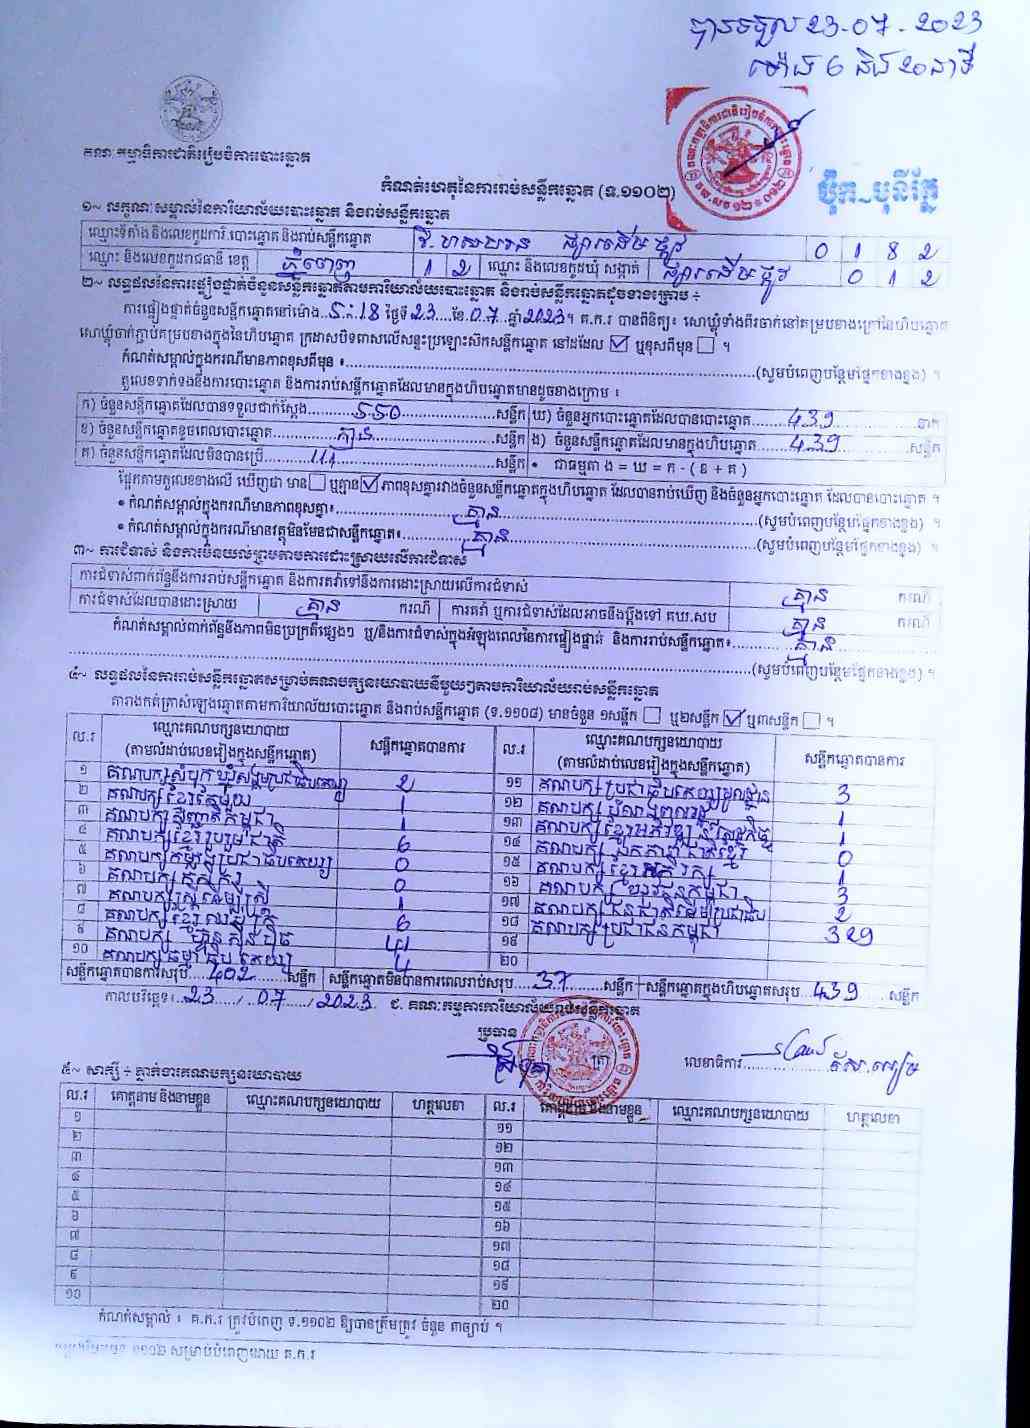 បានទទួល 23-07-2023
ម៉ោង 6 និង 20 នាទី
គណៈកម្មាធិការជាតិរៀបចំការបោះឆ្នោត
កំណត់ហេតុនៃការរាប់សន្លឹកឆ្នោត (ទ.១១០២)
ប៊ុក-បុនីក្លែ
១~ លក្ខណៈសម្គាល់នៃការិយាល័យបោះឆ្នោត និងរាប់សន្លឹកឆ្នោត
ឈ្មោះទីតាំង និងលេខកូដការិ.បោះឆ្នោត និងរាប់សន្លឹកឆ្នោត ផ្សារដើមថ្កូវ 0 1 8 2
ឈ្មោះ និងលេខកូដរាជធានី ខេត្ត ភ្នំពេញ 1 2 ឈ្មោះ និងលេខកូដឃុំ សង្កាត់ ផ្សារដើមថ្កូវ 0 1 2
២~ លទ្ធផលនៃការផ្ទៀងផ្ទាត់ចំនួនសន្លឹកឆ្នោតតាមការិយាល័យបោះឆ្នោត និងរាប់សន្លឹកឆ្នោតដូចខាងក្រោម ÷
ការផ្ទៀងផ្ទាត់ចំនួនសន្លឹកឆ្នោតនៅម៉ោង 3:18 ថ្ងៃទី 23 ខែ 07 ឆ្នាំ 2023។ គ.ក.រ បានពិនិត្យ៖ សោឃ្លុំទាំងពីរចាក់នៅគម្របខាងក្រៅនៃហិបឆ្នោត
សោឃ្លុំចាក់ភ្ជាប់គម្របខាងក្នុងនៃហិបឆ្នោត ក្រដាសបិទពាសលើសន្ទះប្រឡោះសឹកសន្លឹកឆ្នោត នៅដដែល ☑ ឬខុសពីមុន ☐ ។
កំណត់សម្គាល់ក្នុងករណីមានភាពខុសពីមុន ៖ (សូមបំពេញបន្ថែមផ្នែកខាងខ្នង) ។
តួលេខទាក់ទងនឹងការបោះឆ្នោត និងការរាប់សន្លឹកឆ្នោតដែលមានក្នុងហិបឆ្នោតមានដូចខាងក្រោម ៖
ក) ចំនួនសន្លឹកឆ្នោតដែលបានទទួលជាក់ស្តែង 550 សន្លឹក ឃ) ចំនួនអ្នកបោះឆ្នោតដែលបានបោះឆ្នោត 439 នាក់
ខ) ចំនួនសន្លឹកឆ្នោតខូចពេលបោះឆ្នោត គ្មាន សន្លឹក ង) ចំនួនសន្លឹកឆ្នោតដែលមានក្នុងហិបឆ្នោត 439 សន្លឹក
គ) ចំនួនសន្លឹកឆ្នោតដែលមិនបានប្រើ 111 សន្លឹក • ជាធម្មតា ង = ឃ = ក - ( ខ + គ )
ផ្អែកតាមតួលេខខាងលើ ឃើញថា មាន ☐ ឬគ្មាន ☑ ភាពខុសគ្នារវាងចំនួនសន្លឹកឆ្នោតក្នុងហិបឆ្នោត ដែលបានរាប់ឃើញ និងចំនួនអ្នកបោះឆ្នោត ដែលបានបោះឆ្នោត ។
• កំណត់សម្គាល់ក្នុងករណីមានភាពខុសគ្នា៖ គ្មាន (សូមបំពេញបន្ថែមផ្នែកខាងខ្នង) ។
• កំណត់សម្គាល់ក្នុងករណីមានវត្ថុមិនមែនជាសន្លឹកឆ្នោត៖ គ្មាន (សូមបំពេញបន្ថែមផ្នែកខាងខ្នង) ។
៣~ ការជំទាស់ និងការមិនយល់ព្រមតាមការដោះស្រាយលើការជំទាស់
ការជំទាស់ពាក់ព័ន្ធនឹងការរាប់សន្លឹកឆ្នោត និងការតវ៉ាទៅនឹងការដោះស្រាយលើការជំទាស់ គ្មាន ករណី
ការជំទាស់ដែលបានដោះស្រាយ គ្មាន ករណី ការតវ៉ា ឬការជំទាស់ដែលអាចនឹងប្តឹងទៅ គឃ.សប គ្មាន ករណី
កំណត់សម្គាល់ពាក់ព័ន្ធនឹងភាពមិនប្រក្រតីផ្សេងៗ ឬ/និងការជំទាស់ក្នុងអំឡុងពេលនៃការផ្ទៀងផ្ទាត់ និងការរាប់សន្លឹកឆ្នោត៖ គ្មាន
(សូមបំពេញបន្ថែមផ្នែកខាងខ្នង) ។
៤~ លទ្ធផលនៃការរាប់សន្លឹកឆ្នោតសម្រាប់គណបក្សនយោបាយនីមួយៗតាមការិយាល័យរាប់សន្លឹកឆ្នោត
តារាងកត់ត្រាសំឡេងឆ្នោតតាមការិយាល័យបោះឆ្នោត និងរាប់សន្លឹកឆ្នោត (ទ.១១០៨) មានចំនួន ១សន្លឹក ☐ ឬ២សន្លឹក ☑ ឬ៣សន្លឹក ☐ ។
ល.រ ឈ្មោះគណបក្សនយោបាយ (តាមលំដាប់លេខរៀងក្នុងសន្លឹកឆ្នោត) សន្លឹកឆ្នោតបានការ ល.រ ឈ្មោះគណបក្សនយោបាយ (តាមលំដាប់លេខរៀងក្នុងសន្លឹកឆ្នោត) សន្លឹកឆ្នោតបានការ
១ គណបក្សសំបុកឃ្មុំសង្គមប្រជាធិបតេយ្យ 2 ១១ គណបក្សប្រជាធិបតេយ្យមូលដ្ឋាន 3
២ គណបក្សខ្មែរតែមួយ 1 ១២ គណបក្សបំណងពលរដ្ឋ 1
៣ គណបក្សបញ្ញាតិកម្ពុជា 1 ១៣ គណបក្សខ្មែរអភិវឌ្ឍន៍សេដ្ឋកិច្ច 1
៤ គណបក្សខ្មែររួបរួមជាតិ 6 ១៤ គណបក្សឯកភាពជាតិខ្មែរ 0
៥ គណបក្សកម្លាំងប្រជាធិបតេយ្យ 0 ១៥ គណបក្សខ្មែរអភិរក្ស 1
៦ គណបក្សកសិករ 0 ១៦ គណបក្សយុវជនកម្ពុជា 3
៧ គណបក្សស្ត្រីដើម្បីស្ត្រី 1 ១៧ គណបក្សជនជាតិដើមប្រជាធិប 2
៨ គណបក្សខ្មែរឈប់ក្រ 6 ១៨ គណបក្សប្រជាជនកម្ពុជា 329
៩ គណបក្សហ្វ៊ុនស៊ិនប៉ិច ១៩
១០ គណបក្សធម្មាធិបតេយ្យ 20
សន្លឹកឆ្នោតបានការសរុប 402 សន្លឹក សន្លឹកឆ្នោតមិនបានការពេលរាប់សរុប 37 សន្លឹក សន្លឹកឆ្នោតក្នុងហិបឆ្នោតសរុប 439 សន្លឹក
កាលបរិច្ឆេទ៖ 23 / 07 / 2023 ជ. គណៈកម្មការការិយាល័យរាប់សន្លឹកឆ្នោត
ប្រធាន លេខាធិការ
៥~ សាក្សី ÷ ភ្នាក់ងារគណបក្សនយោបាយ
ល.រ គោត្តនាម និងនាមខ្លួន ឈ្មោះគណបក្សនយោបាយ ហត្ថលេខា ល.រ គោត្តនាម និងនាមខ្លួន ឈ្មោះគណបក្សនយោបាយ ហត្ថលេខា
១ ១១
២ ១២
៣ ១៣
៤ ១៤
៥ ១៥
៦ ១៦
៧ ១៧
៨ ១៨
៩ ១៩
១០ 20
កំណត់សម្គាល់ ៖ គ.ក.រ ត្រូវបំពេញ ទ.១១០២ ឱ្យបានត្រឹមត្រូវ ចំនួន ៣ច្បាប់ ។
១១០២ សម្រាប់បំពេញដោយ គ.ក.រ